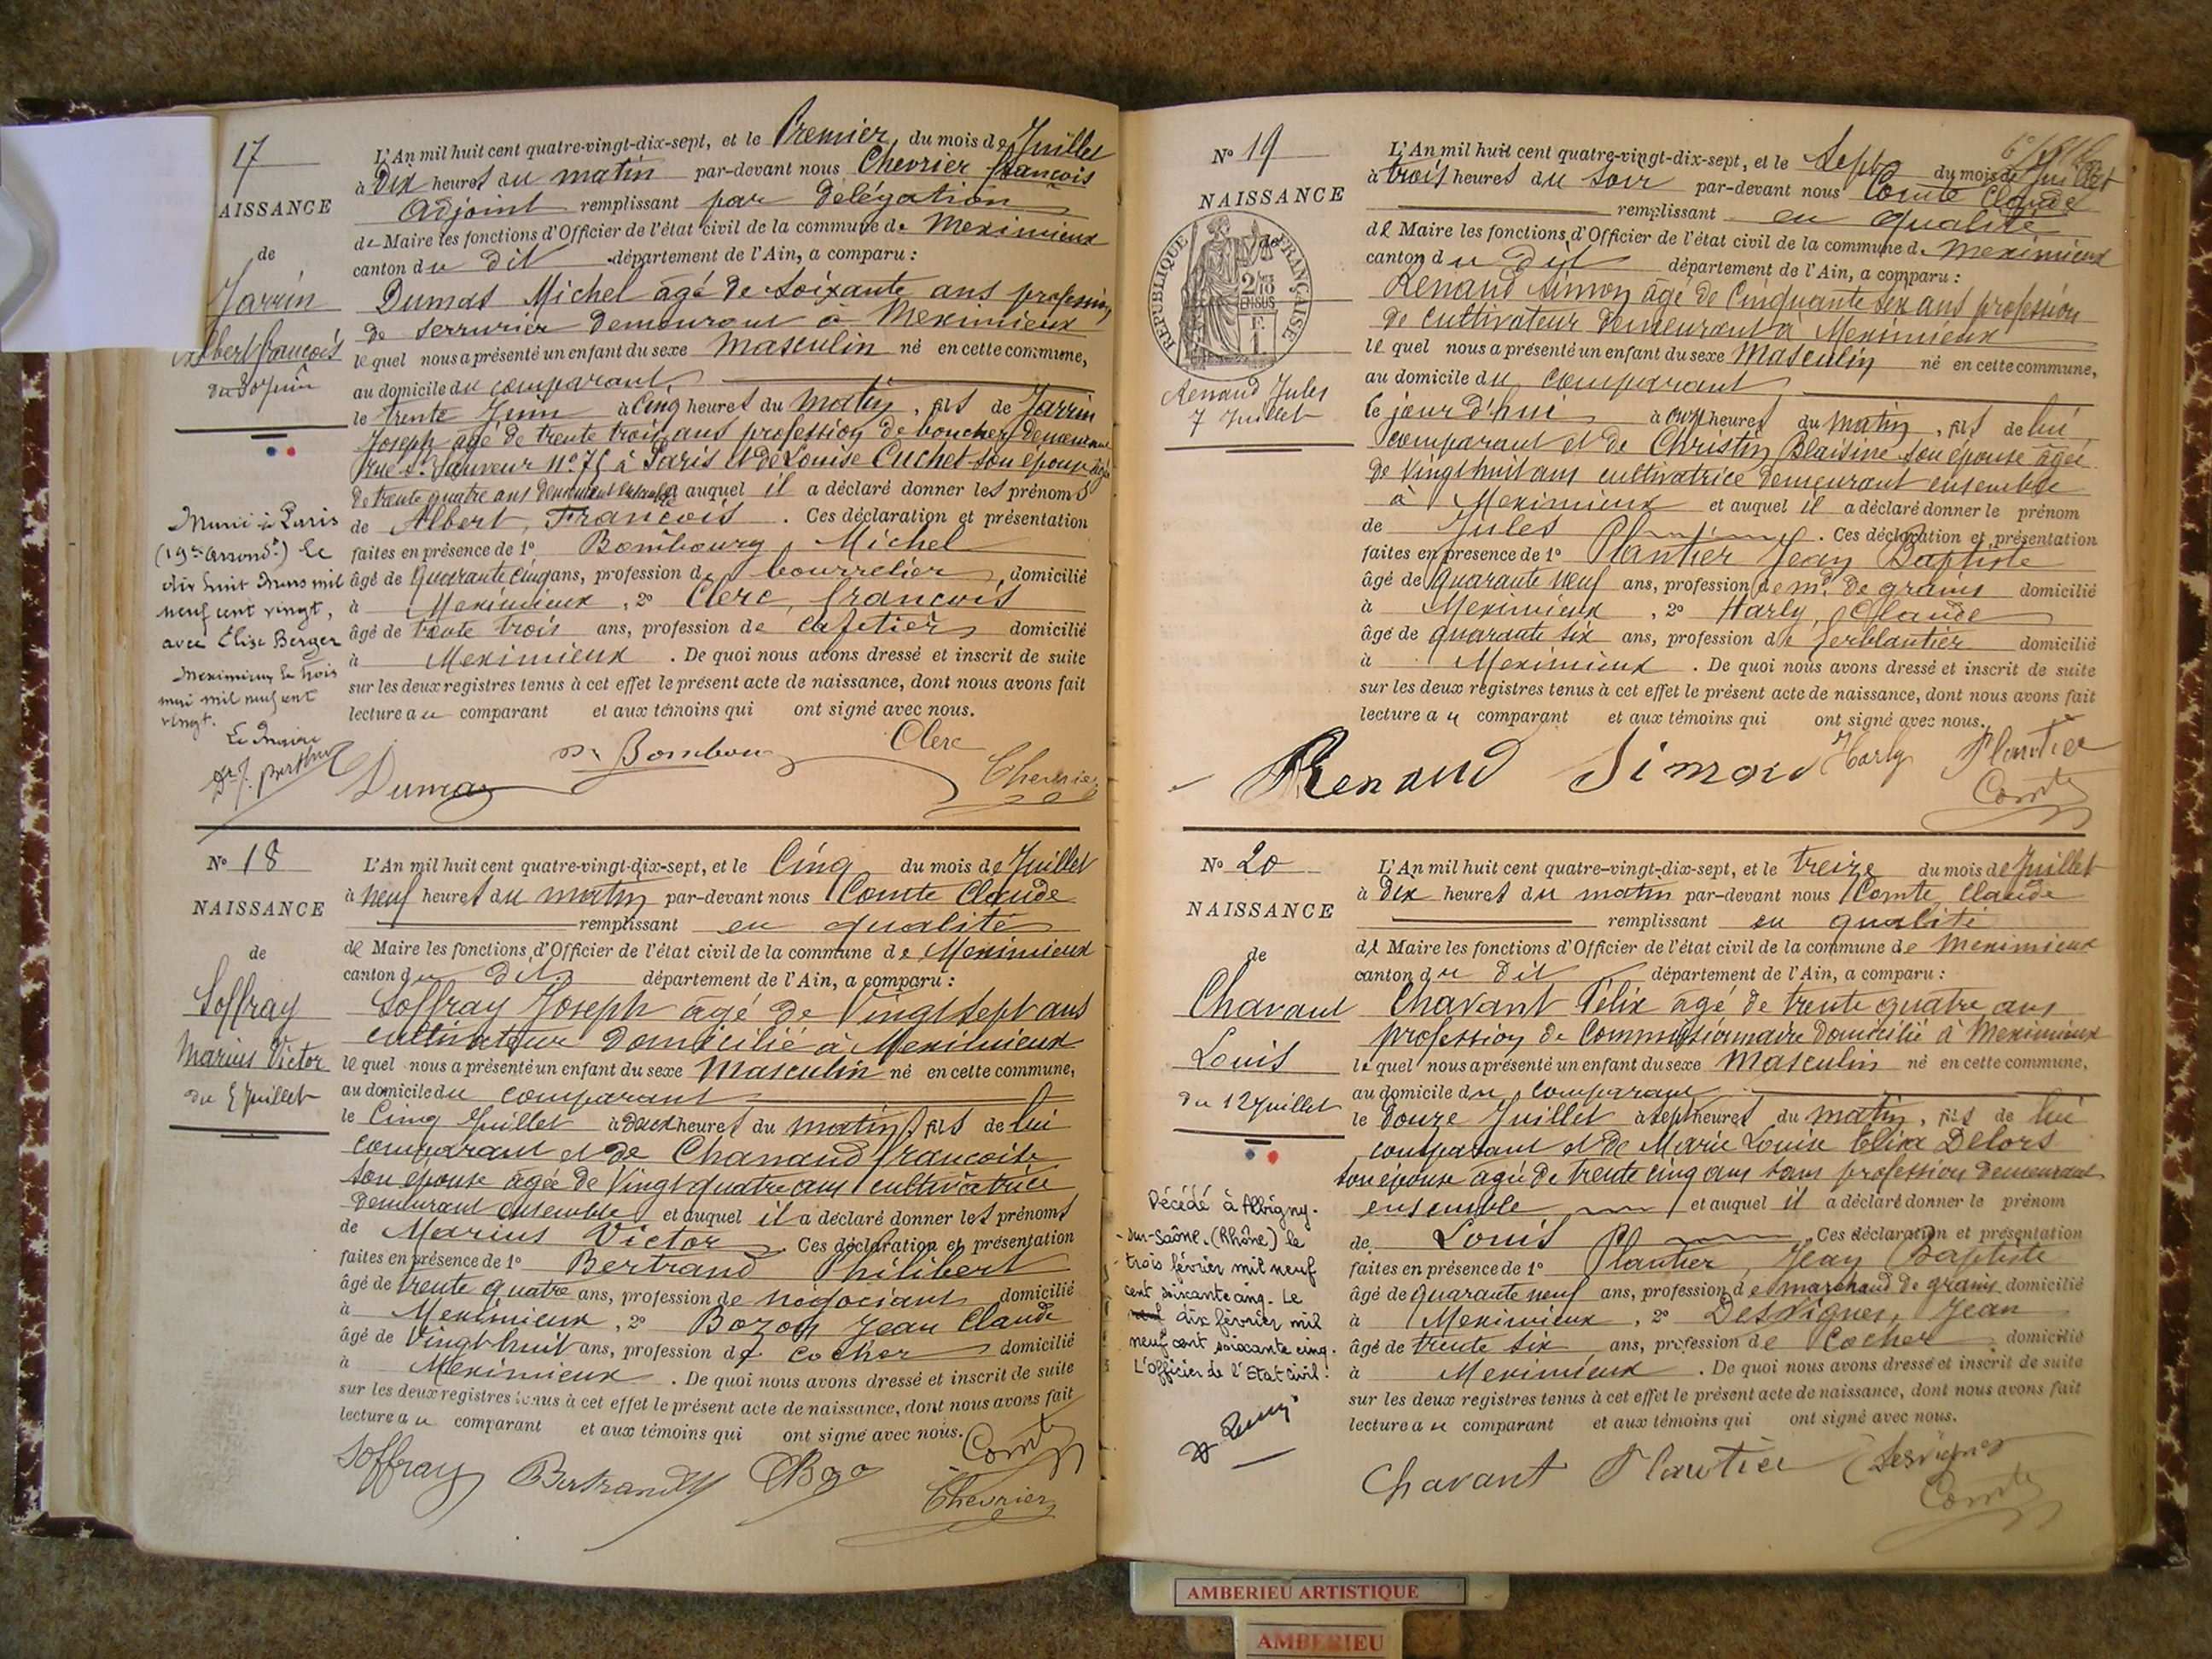 17
AISSANCE
de
Jarrin
Albert françois
du 30 Juin
L'An mil huit cent quatre-vingt-dix-sept, et le Premier du mois de Juillet
à Dix heures du matin par-devant nous Chevrier françois
Adjoint remplissant par délégation
de Maire les fonctions d'Officier de l'état civil de la commune de Meximieux
canton du dit département de l'Ain, a comparu :
Dumas Michel âgé de Soixante ans profession
de serrurier demeurant à Meximieux
le quel nous a présenté un enfant du sexe Masculin né en cette commune,
au domicile du comparant,
le trente Juin à Cinq heures du matin, fils de Jarrin
Joseph âgé de trente trois ans profession de boucher demeurant
rue St. Sauveur No. 75 à Paris et de Louise Cuchet son épouse âgée
de trente quatre ans demeurant ensemble auquel il a déclaré donner les prénoms
de Albert, François . Ces déclaration et présentation
faites en présence de 1° Bombourg, Michel
âgé de Quarante cinq ans, profession de bourrelier, domicilié
à Meximieux, 2° Clerc, françois
âgé de trente trois ans, profession de cafetier domicilié
à Meximieux . De quoi nous avons dressé et inscrit de suite
sur les deux registres tenus à cet effet le présent acte de naissance, dont nous avons fait
lecture au comparant et aux témoins qui ont signé avec nous.
Marié à Paris
(19e arrondt) le
dix huit mars mil
neuf cent vingt,
avec Élise Berger
Meximieux le trois
mai mil neuf cent
vingt.
Le Maire
Dumas Bombour Clerc Chevrier
No 18
NAISSANCE
de
Soffray
Marius Victor
du 5 Juillet
L'An mil huit cent quatre-vingt-dix-sept, et le Cinq du mois de Juillet
à neuf heures du matin par-devant nous Comte Claude
remplissant en qualité
de Maire les fonctions d'Officier de l'état civil de la commune de Meximieux
canton du dit département de l'Ain, a comparu :
Soffray Joseph âgé de Vingt sept ans
cultivateur domicilié à Meximieux
le quel nous a présenté un enfant du sexe Masculin né en cette commune,
au domicile du comparant
le Cinq Juillet à deux heures du matin, fils de lui
comparant et de Chanaud françoise
son épouse âgée de Vingt quatre ans cultivatrice
demeurant ensemble et auquel il a déclaré donner les prénoms
de Marius Victor . Ces déclaration et présentation
faites en présence de 1° Bertrand Philibert
âgé de trente quatre ans, profession de négociant domicilié
à Meximieux, 2° Bozon Jean Claude
âgé de Vingt-huit ans, profession de cocher domicilié
à Meximieux . De quoi nous avons dressé et inscrit de suite
sur les deux registres tenus à cet effet le présent acte de naissance, dont nous avons fait
lecture au comparant et aux témoins qui ont signé avec nous.
Soffray Bertrand Comte
Chevrier
No 19
NAISSANCE
de
RÉPUBLIQUE FRANÇAISE
Renaud Jules
7 Juillet
L'An mil huit cent quatre-vingt-dix-sept, et le Sept du mois de Juillet
à trois heures du soir par-devant nous Comte Claude
remplissant en qualité
de Maire les fonctions d'Officier de l'état civil de la commune de Meximieux
canton du dit département de l'Ain, a comparu :
Renaud Simon âgé de Cinquante six ans profession
de cultivateur demeurant à Meximieux
le quel nous a présenté un enfant du sexe Masculin né en cette commune,
au domicile du comparant,
le jour d'hui à onze heures du matin, fils de lui
comparant et de Christin Blaisine son épouse âgée
de vingt huit ans cultivatrice demeurant ensemble
à Meximieux et auquel il a déclaré donner le prénom
de Jules . Ces déclaration et présentation
faites en présence de 1° Plantier Jean Baptiste
âgé de quarante neuf ans, profession de md. de grains domicilié
à Meximieux, 2° Harly, Claude
âgé de quarante six ans, profession de ferblantier domicilié
à Meximieux . De quoi nous avons dressé et inscrit de suite
sur les deux registres tenus à cet effet le présent acte de naissance, dont nous avons fait
lecture au comparant et aux témoins qui ont signé avec nous.
Renaud Simon Harly Plantier
Comte
No 20
NAISSANCE
de
Chavant
Louis
du 12 Juillet
L'An mil huit cent quatre-vingt-dix-sept, et le treize du mois de Juillet
à Dix heures du matin par-devant nous Comte, Claude
remplissant en qualité
de Maire les fonctions d'Officier de l'état civil de la commune de Meximieux
canton du dit département de l'Ain, a comparu :
Chavant Félix âgé de trente quatre ans
profession de Commissionnaire domicilié à Meximieux
le quel nous a présenté un enfant du sexe Masculin né en cette commune,
au domicile du comparant
le douze Juillet à sept heures du matin, fils de lui
comparant et de Marie Louise Elisa Delors
son épouse âgée de trente cinq ans sans profession demeurant
ensemble et auquel il a déclaré donner le prénom
de Louis Ces déclaration et présentation
faites en présence de 1° Plantier Jean Baptiste
âgé de quarante neuf ans, profession de marchand de grains domicilié
à Meximieux, 2° Desvignes, Jean
âgé de trente six ans, profession de Cocher domicilié
à Meximieux . De quoi nous avons dressé et inscrit de suite
sur les deux registres tenus à cet effet le présent acte de naissance, dont nous avons fait
lecture au comparant et aux témoins qui ont signé avec nous.
Décédé à Albigny-
-sur-Saône. (Rhône.) le
trois février mil neuf
cent soixante cinq. Le
dix février mil
neuf cent soixante cinq.
L'officier de l'Etat Civil.
Chavant Plantier Desvignes
Comte
AMBERIEU ARTISTIQUE
AMBERIEU